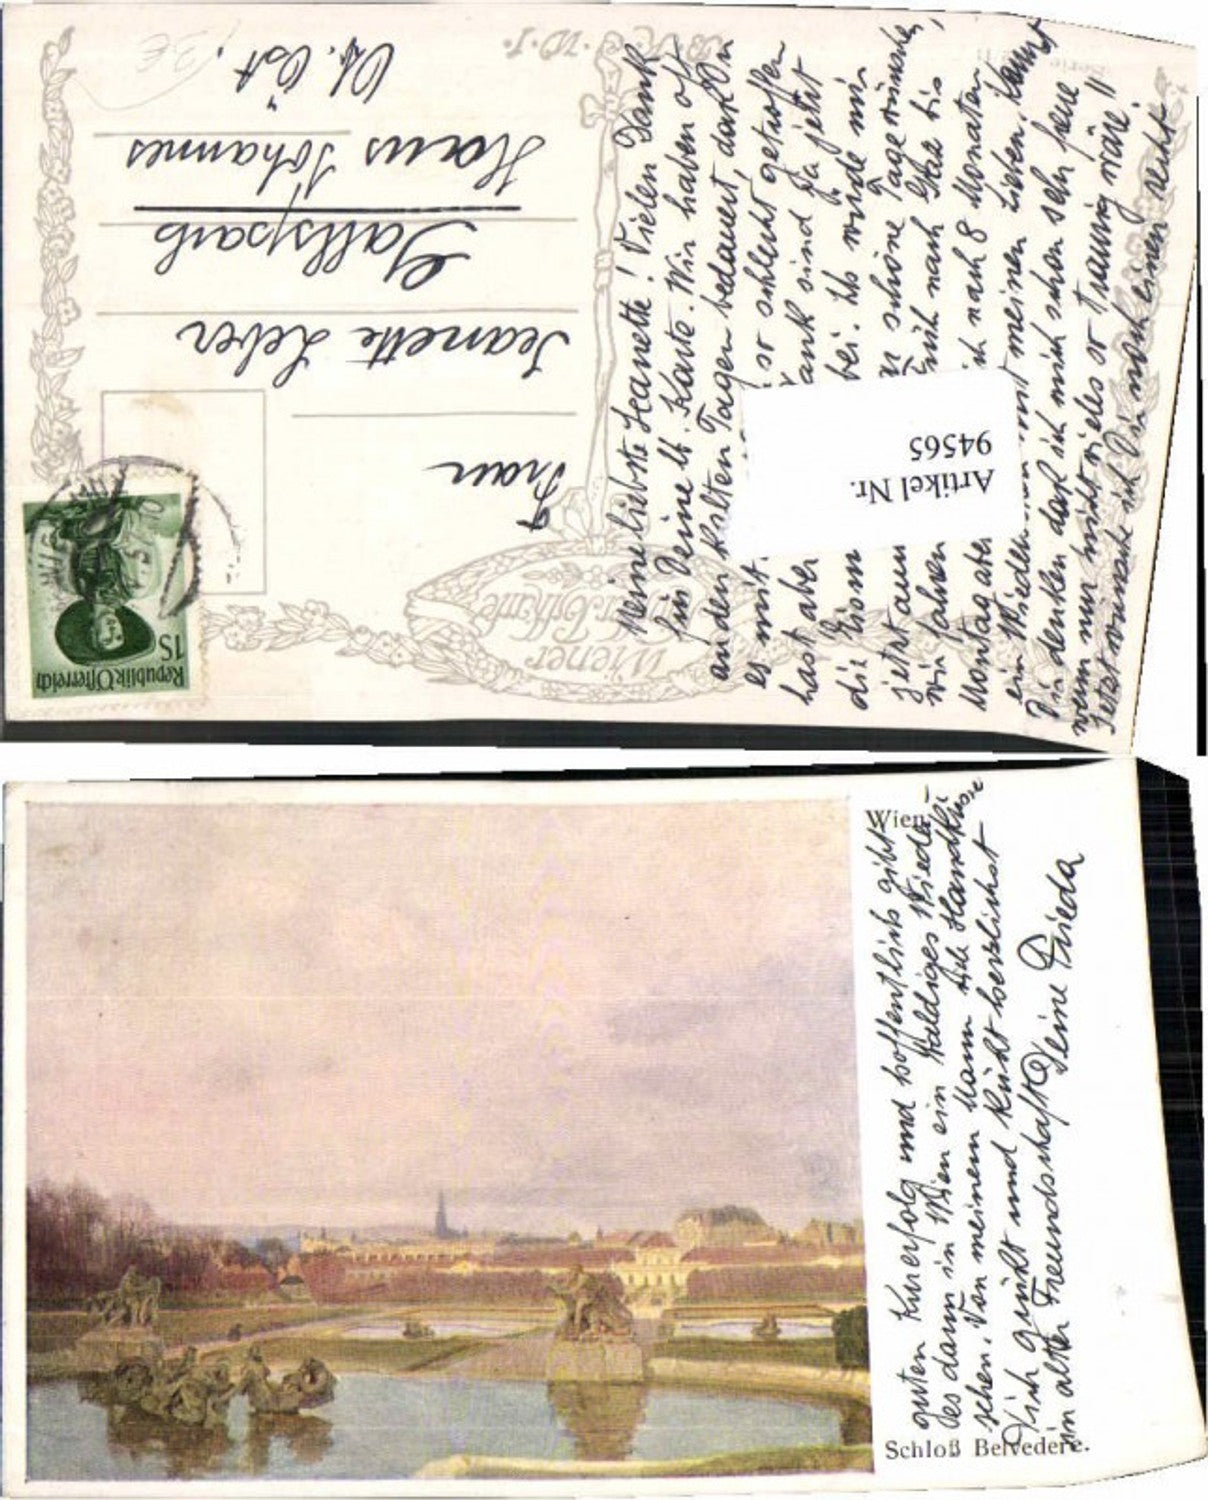 B.K.W.I.
Serie
Frau
Jeanette Leber
Gallspach
Haus Johannes
Ob. Öst.
Republik Österreich
1S
WIEN
Wiener
Artikel Nr.
94565
Meine liebste Jeanette! Vielen Dank
für Deine lb. Karte. Wir haben oft
an den kalten Tagen bedauert, daß Du
es mit so schlecht getroffen
hast aber Dank sind ja jetzt
die bei. Ich würde mir
jetzt nun schöne Tage wünschen,
wir fahren nach
Montag aber ich nach 8 Monaten
ein Wiedersehen mit meinen Lieben, kannst
Dir denken daß ich mich schon sehr freue
wenn nur nicht vieles so traurig wäre!!
Jetzt wünsche ich Dir noch einen recht
Wien.
guten Kurerfolg und hoffentlich gibt
es dann in Wien ein baldiges Wieder-
sehen. Von meinem Mann Handküsse
Dich grüßt und küßt herzlichst
in alter Freundschaft Deine Frieda
Schloß Belvedere.